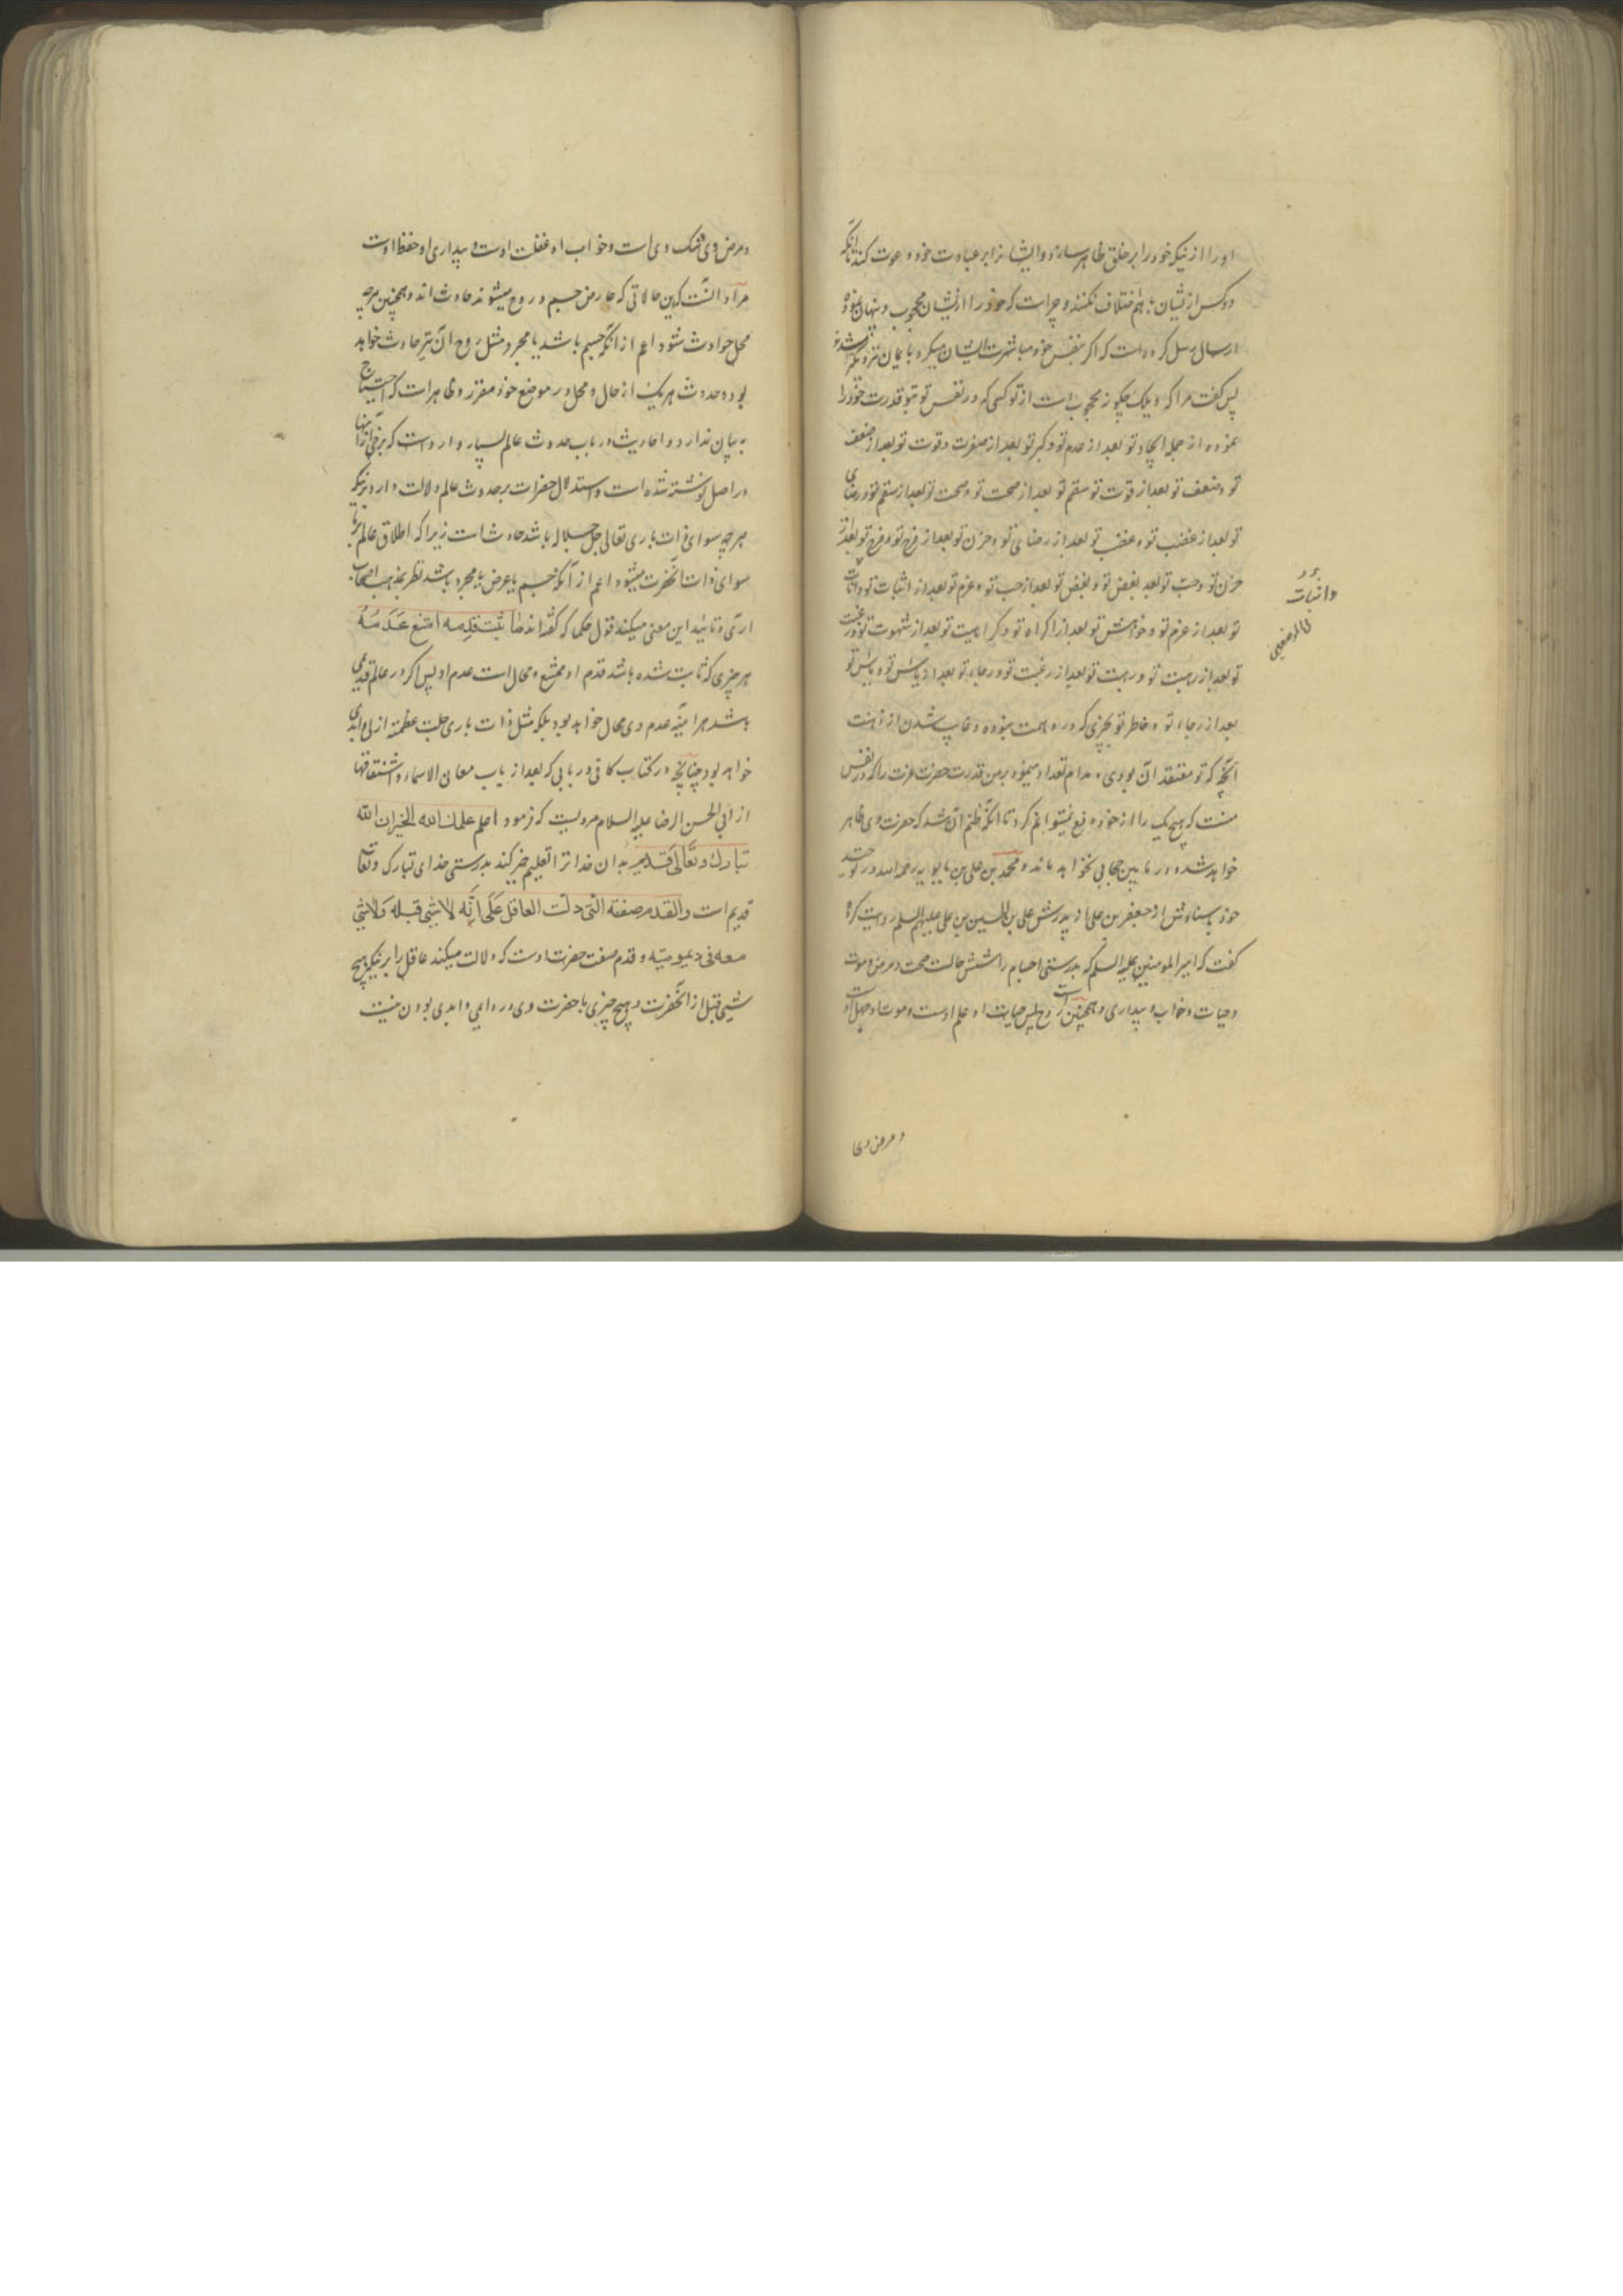 او را از نیکه خود را بر خلق ظاهر سازد و ایشانرا بر عبادت خود دعوت کند تا آنکه
دو کس از ایشان باهم اختلاف نکنند و چراست که خود را از ایشان محجوب و پنهان نموده
ارسال رسل کرده است که اگر بنفس خود مباشرت ایشان میکرد بایمان نزدیکتر میشدند
پس گفت مرا که ویلک چگونه محجوب است از تو کسی که در نفس تو بتو قدرت خود را
نموده از جمله ایجاد تو بعد از عدم تو و کبر تو بعد از صغرت و قوت تو بعد از ضعف
تو و ضعف تو بعد از قوت تو سقم تو بعد از صحت تو و صحت تو بعد از سقم تو و رضای
تو بعد از غضب تو و غضب تو بعد از رضای تو و حزن تو بعد از فرح تو و فرح تو بعد از
حزن تو و حب تو بعد بغض تو و بغض تو بعد از حب تو و عزم تو بعد از اثبات تو و اثبات
تو بعد از عزم تو و خواهش تو بعد از اکراه تو و کراهیت تو بعد از شهوت تو و رغبت
تو بعد از رهبت تو و رهبت تو بعد از رغبت تو و رجاء تو بعد از یاس تو و یاس تو
بعد از رجاء تو و خاطر تو بچیزی که در وهمت نبوده و غایب شدن از ذهنت
آنچه که تو معتقد آن بودی و مدام تعداد مینمود بر من قدرت حضرت عزت را که در نفس
منست که هیچ یک را از خود دفع نمیتوانم کرد تا آنکه ظنم آن شد که حضرت وی ظاهر
خواهد شد و در مابین حجابی نخواهد ماند و محمد بن علی بن بابویه رحمه الله در توحید
خود باسنادش از جعفر بن علی از پدرش علی بن الحسین بن علی علیهم السلم روایت کرده
گفت که امیر المومنین علیه السلم که بدرستی اجسام را شش حالت صحت و مرض و موت
و حیات و خواب و بیداری و همچنین است روح پس حیات او علم اوست و موت او جهل اوست
و اثبات
و مرض وی
و مرض وی شک وی است و خواب او غفلت اوست و بیداری او حفظ اوست
مراد آنست که این حالاتی که عارض جسم و روح میشوند حادث اند و همچنین هرچه
محل حوادث شود اعم از آنکه جسم باشد یا مجرد مثل روح آن نیز حادث خواهد
بود و حدوث هر یک از حال و محل در موضع خود مقرر و ظاهر است که احتیاج
به بیان ندارد و احادیث در باب حدوث عالم بسیار وارد است که برخی از آنها
در اصل نوشته شده است و استدلال حضرات بر حدوث عالم دلالت دارد برینکه
هرچه سوای ذات باری تعالی جل جلاله باشد حادث است زیرا که اطلاق عالم بر ما
سوای ذات آنحضرت میشود اعم از آنکه جسم یا عرض یا مجرد باشد نظر بمذهب اصحاب
آری و تائید این معنی میکند قول حکما که گفته اند ما ثبت قدمه امتنع عدمه
هر چیزی که ثابت شده باشد قدم او ممتنع و محال است عدم او پس اگر در عالم قدیمی
باشد هرآینه عدم وی محال خواهد بود بلکه مثل ذات باری جلت عظمته ازلی و ابدی
خواهد بود چنانچه در کتاب کافی در بابی که بعد از باب معانی الاسماء و اشتقاقها
از ابی الحسن الرضا علیه السلام مرویست که فرمود اعلم علمک الله الخیر ان الله
تبارک و تعالی قدیم بدان خدا ترا تعلیم خیر کند بدرستی خدای تبارک و تعالی
قدیم است والقدم صفته التی دلت العاقل علی انه لا شئ قبله ولا شئ
معه فی دیمومیته و قدم صفت حضرت اوست که دلالت میکند عاقل را برینکه هیچ
شیئی قبل از آنحضرت و هیچ چیزی با حضرت وی در دایمی و ابدی بودن نیست